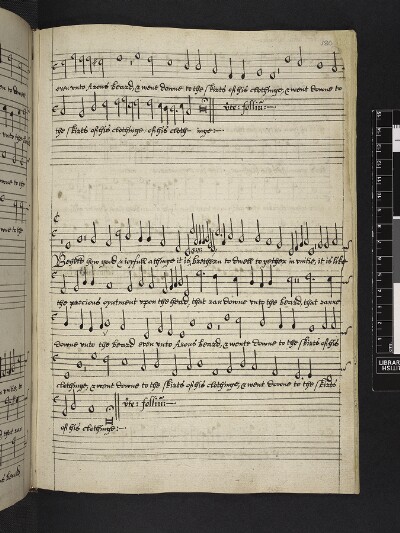 even unto Arons beard, & went downe to the skirts of his clothinge, & went downe to
the skirts of his clothinge. of his cloth inge:
Beholde how good & ioyfull a thinge it is bretheren to dwell to gether in unitie, it is like
the precious oyntment upon the head, that ran downe unto the beard, that ranne
downe unto the beard even unto Arons beard, & went downe to the skirts of his
clothinge, & went downe to the skirts of his clothinge, & went downe to the skirts
of his clothinge:
LIBRARY